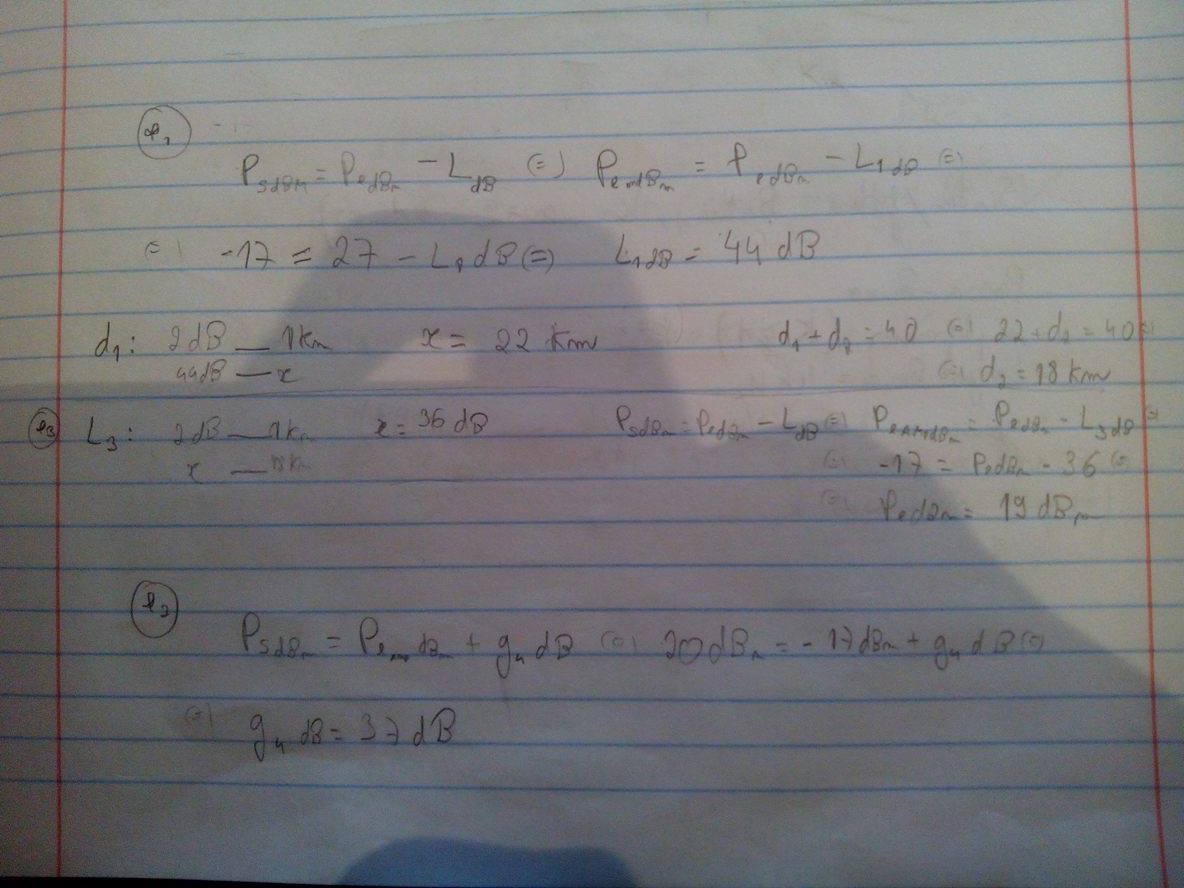 P_sdBm = P_edBm - L_dB (=) P_e min dBm = P_edBm - L_1dB (=)
(=) -17 = 27 - L_1 dB (=) L_1dB = 44 dB
d_1: 2dB — 1km x = 22 km d_1 + d_2 = 40 (=) 22 + d_2 = 40 (=)
44dB — x (=) d_2 = 18 km
L_3: 2dB — 1km x = 36 dB P_sdBm = P_edBm - L_dB (=) P_e min dBm = P_edBm - L_3dB (=)
x — 18km (=) -17 = P_edBm - 36 (=)
(=) P_edBm = 19 dBm
P_sdBm = P_e min dBm + g_4 dB (=) 20 dBm = -17 dBm + g_4 dB (=)
(=) g_4 dB = 37 dB